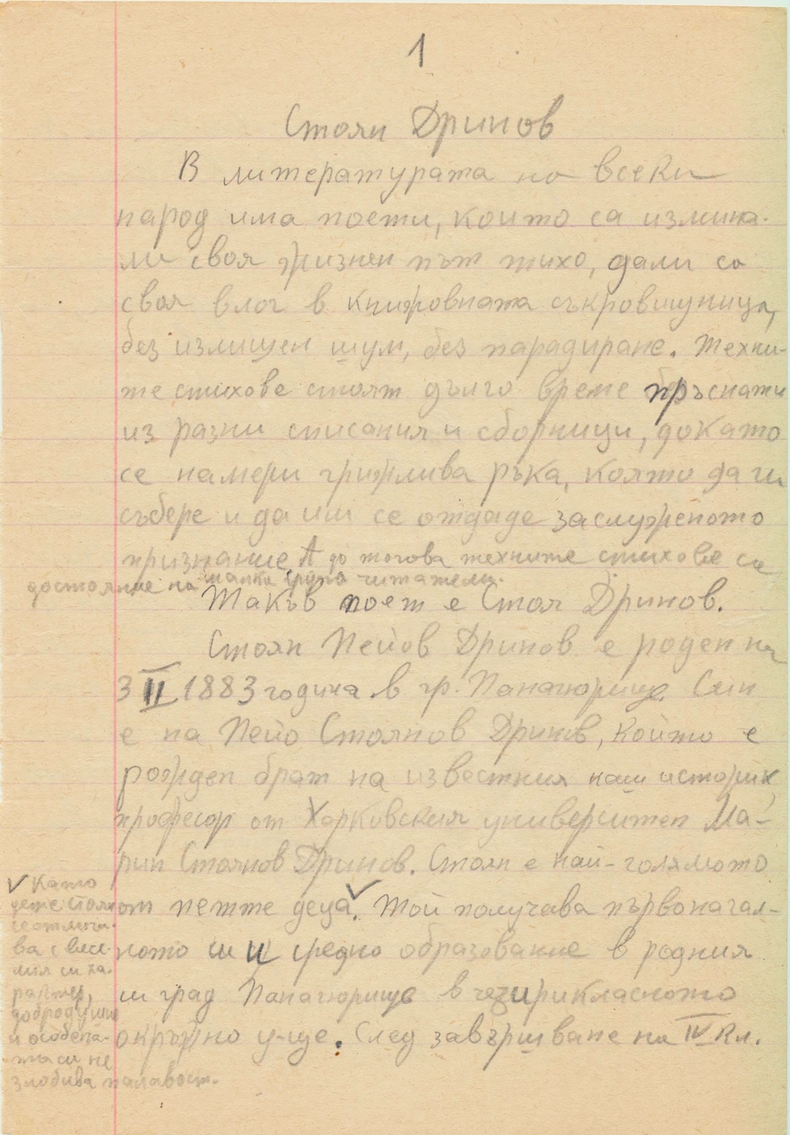 1
Стоян Дринов
В литературата на всеки
народ има поети, които са измина-
ли своя жизнен път тихо, дали са
своя влог в книжовната съкровищница,
без излишен шум, без парадиране. Техни-
те стихове стоят дълго време пръснати
из разни списания и сборници, докато
се намери грижлива ръка, която да ги
събере и да им се отдаде заслуженото
признание, А до тогава техните стихове са
достояние на малка група читатели.
Такъв поет е Стоя Дринов.
Стоян Пейов Дринов е роден на
3 II 1883 година в гр. Панагюрище. Син
е на Пейо Стоянов Дринов, който е
рожден брат на известния наш историк,
професор от Харковския университет Ма-
рин Стоянов Дринов. Стоян е най-голямото
от петте деца. ✓ Той получава първоначал-
ното си и средно образование в родния
си град Панагюрище в четирикласното
окръжно у-ще. След завършване на IV кл.
✓ Като
дете Стоян
се отлича-
ва с весе-
лия си ха-
рактер,
добродушие
и особена-
та си не
злоблива палавост.